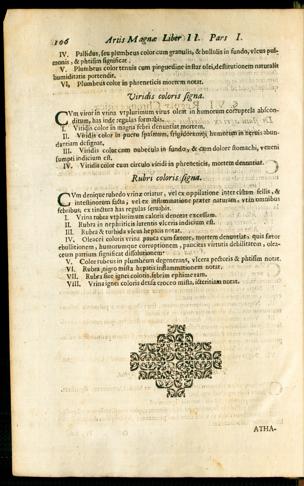 106 Artis Magnæ Liber II. Pars I.
IV. Pallidus, seu plumbeus color cum granulis, & bullulis in fundo, vlcus pul-
monis, & phtisim significat.
V. Plumbeus color tenuis cum pinguedine instar olei, destitutionem naturalis
humiditatis portendit.
VI. Plumbeus color in phreneticis mortem notat.
Viridis coloris signa.
CVm viror in vrina vt plurimum virus olens in humorum corruptela abscon-
ditum, has inde regulas formabis.
I. Viridis color in magna febri denuntiat mortem.
II. Viridis color in puero spasmum, frigidorumq; humorum in neruis abun-
dantiam designat.
III. Viridis color cum nubecula in fundo, & cum dolore stomachi, veneni
sumpti indicium est.
IV. Viridis color cum circulo viridi in phreneticis, mortem denuntiat.
Rubri coloris signa.
CVm denique rubedo vrinæ oriatur, vel ex oppilatione inter cistim fellis, &
intestinorum facta, vel ex inflammatione præter naturam, vt in omnibus
febribus; ex tinctura has regulas seruabis.
I. Vrina rubea vt plurimum caloris denotat excessum.
II. Rubra in nephriticis latentis vlceris indicium est.
III. Rubra & turbida vlcus hepatis notat.
IV. Oleacei coloris vrina pauca cum fœtore, mortem denuntiat; quia fœtor
ebullitionem, humorumque corruptionem, paucitas virtutis debilitatem, olea-
ceum partium significat dissolutionem.
V. Color rubeus in plumbeum degenerans, vlcera pectoris & phtisim notat.
VI. Rubra nigro mista hepatis inflammationem notat.
VII. Rubra siue ignei coloris febrim ephimeram.
VIII. Vrina ignei coloris densa croceo mista, icteritiam notat.
ATHA-